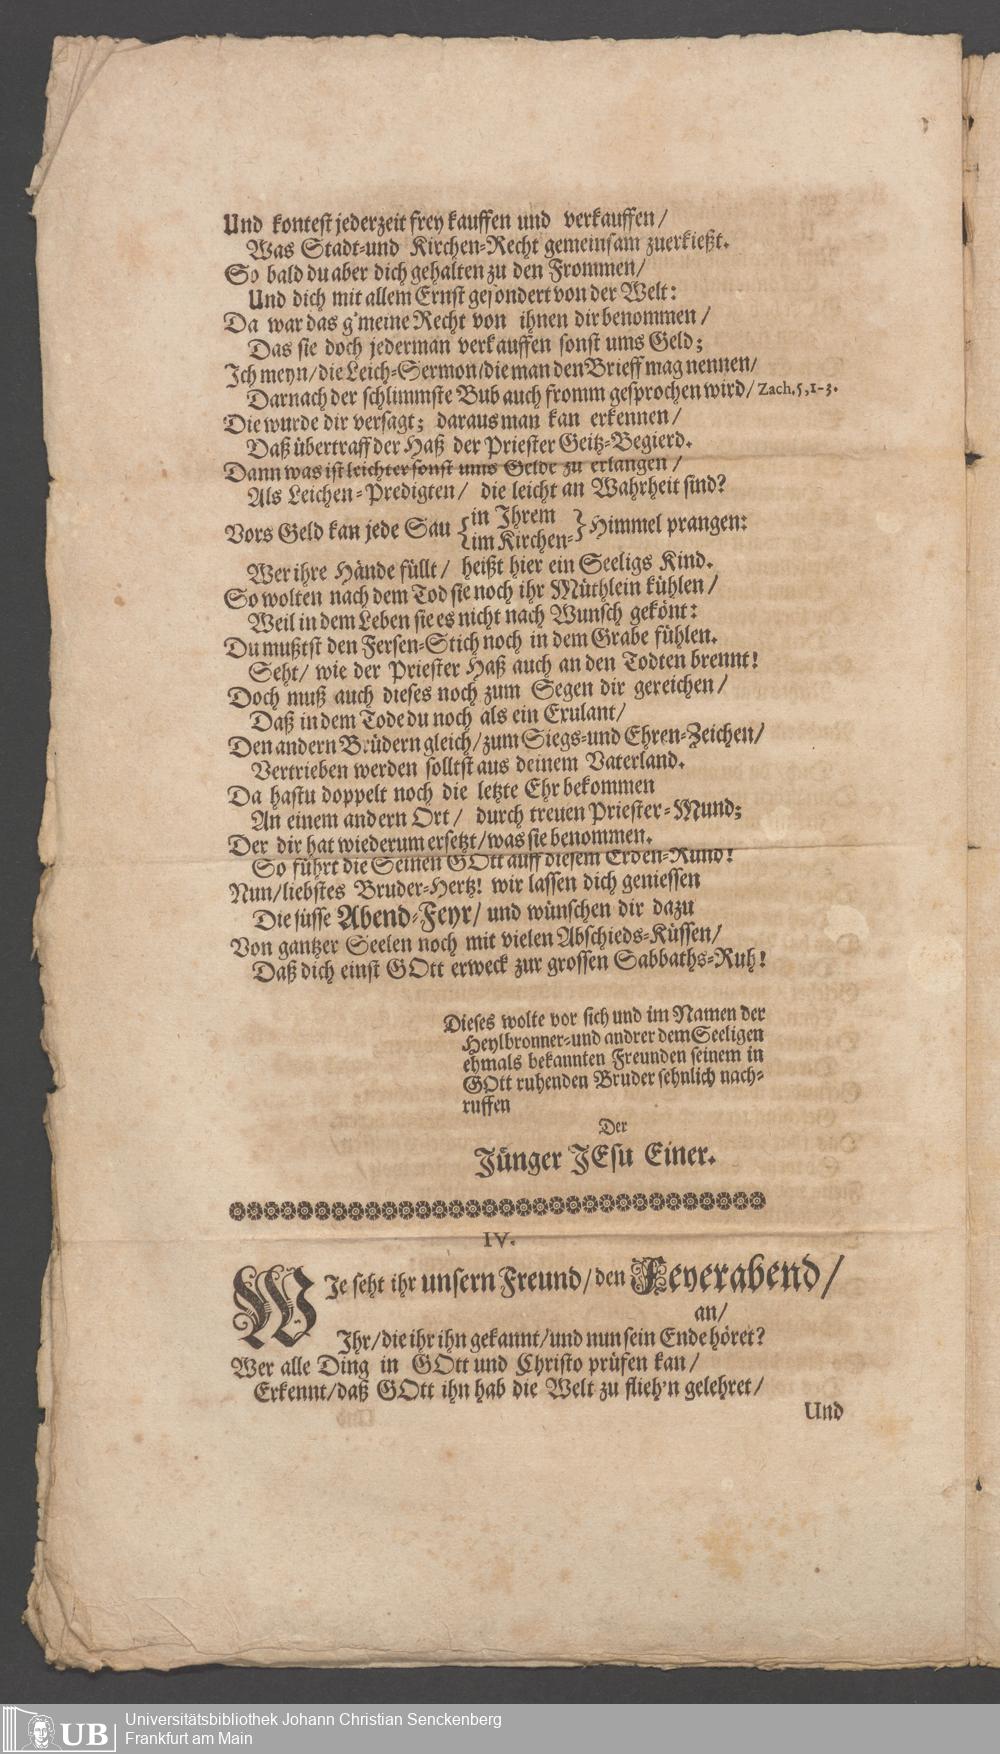 Und kontest jederzeit frey kauffen und verkauffen/
Was Stadt-und Kirchen-Recht gemeinsam zuerkießt.
So bald du aber dich gehalten zu den Frommen/
Und dich mit allem Ernst gesondert von der Welt:
Da war das g'meine Recht von ihnen dir benommen/
Das sie doch jederman verkauffen sonst ums Geld;
Ich meyn/die Leich-Sermon/die man den Brieff mag nennen/
Darnach der schlimmste Bub auch fromm gesprochen wird/ Zach. 5, 1-3.
Die wurde dir versagt; daraus man kan erkennen/
Daß übertraff der Haß der Priester Geitz-Begierd.
Dann was ist leichter sonst ums Gelde zu erlangen/
Als Leichen-Predigten/ die leicht an Wahrheit sind?
Vors Geld kan jede Sau {in Ihrem
im Kirchen-} Himmel prangen:
Wer ihre Hände füllt/ heißt hier ein Seeligs Kind.
So wolten nach dem Tod sie noch ihr Müthlein kühlen/
Weil in dem Leben sie es nicht nach Wunsch gekönt:
Du mußtst den Fersen-Stich noch in dem Grabe fühlen.
Seht/ wie der Priester Haß auch an den Todten brennt!
Doch muß auch dieses noch zum Segen dir gereichen/
Daß in dem Tode du noch als ein Exulant/
Den andern Brüdern gleich/zum Siegs-und Ehren-Zeichen/
Vertrieben werden solltst aus deinem Vaterland.
Da hastu doppelt noch die letzte Ehr bekommen
An einem andern Ort/ durch treuen Priester-Mund;
Der dir hat wiederum ersetzt/was sie benommen.
So führt die Seinen GOtt auff diesem Erden-Rund!
Nun/liebstes Bruder-Hertz! wir lassen dich geniessen
Die süsse Abend-Feyr/ und wünschen dir dazu
Von gantzer Seelen noch mit vielen Abschieds-Küssen/
Daß dich einst GOtt erweck zur grossen Sabbaths-Ruh!
Dieses wolte vor sich und im Namen der
Heylbronner-und andrer dem Seeligen
ehmals bekannten Freunden seinem in
GOtt ruhenden Bruder sehnlich nach-
ruffen
Der
Jünger JEsu Einer.
IV.
WJe seht ihr unsern Freund/den Feyerabend/
an/
Ihr/die ihr ihn gekannt/und nun sein Ende höret?
Wer alle Ding in GOtt und Christo prüfen kan/
Erkennt/daß GOtt ihn hab die Welt zu flieh'n gelehret/
Und
UB
Universitätsbibliothek Johann Christian Senckenberg
Frankfurt am Main